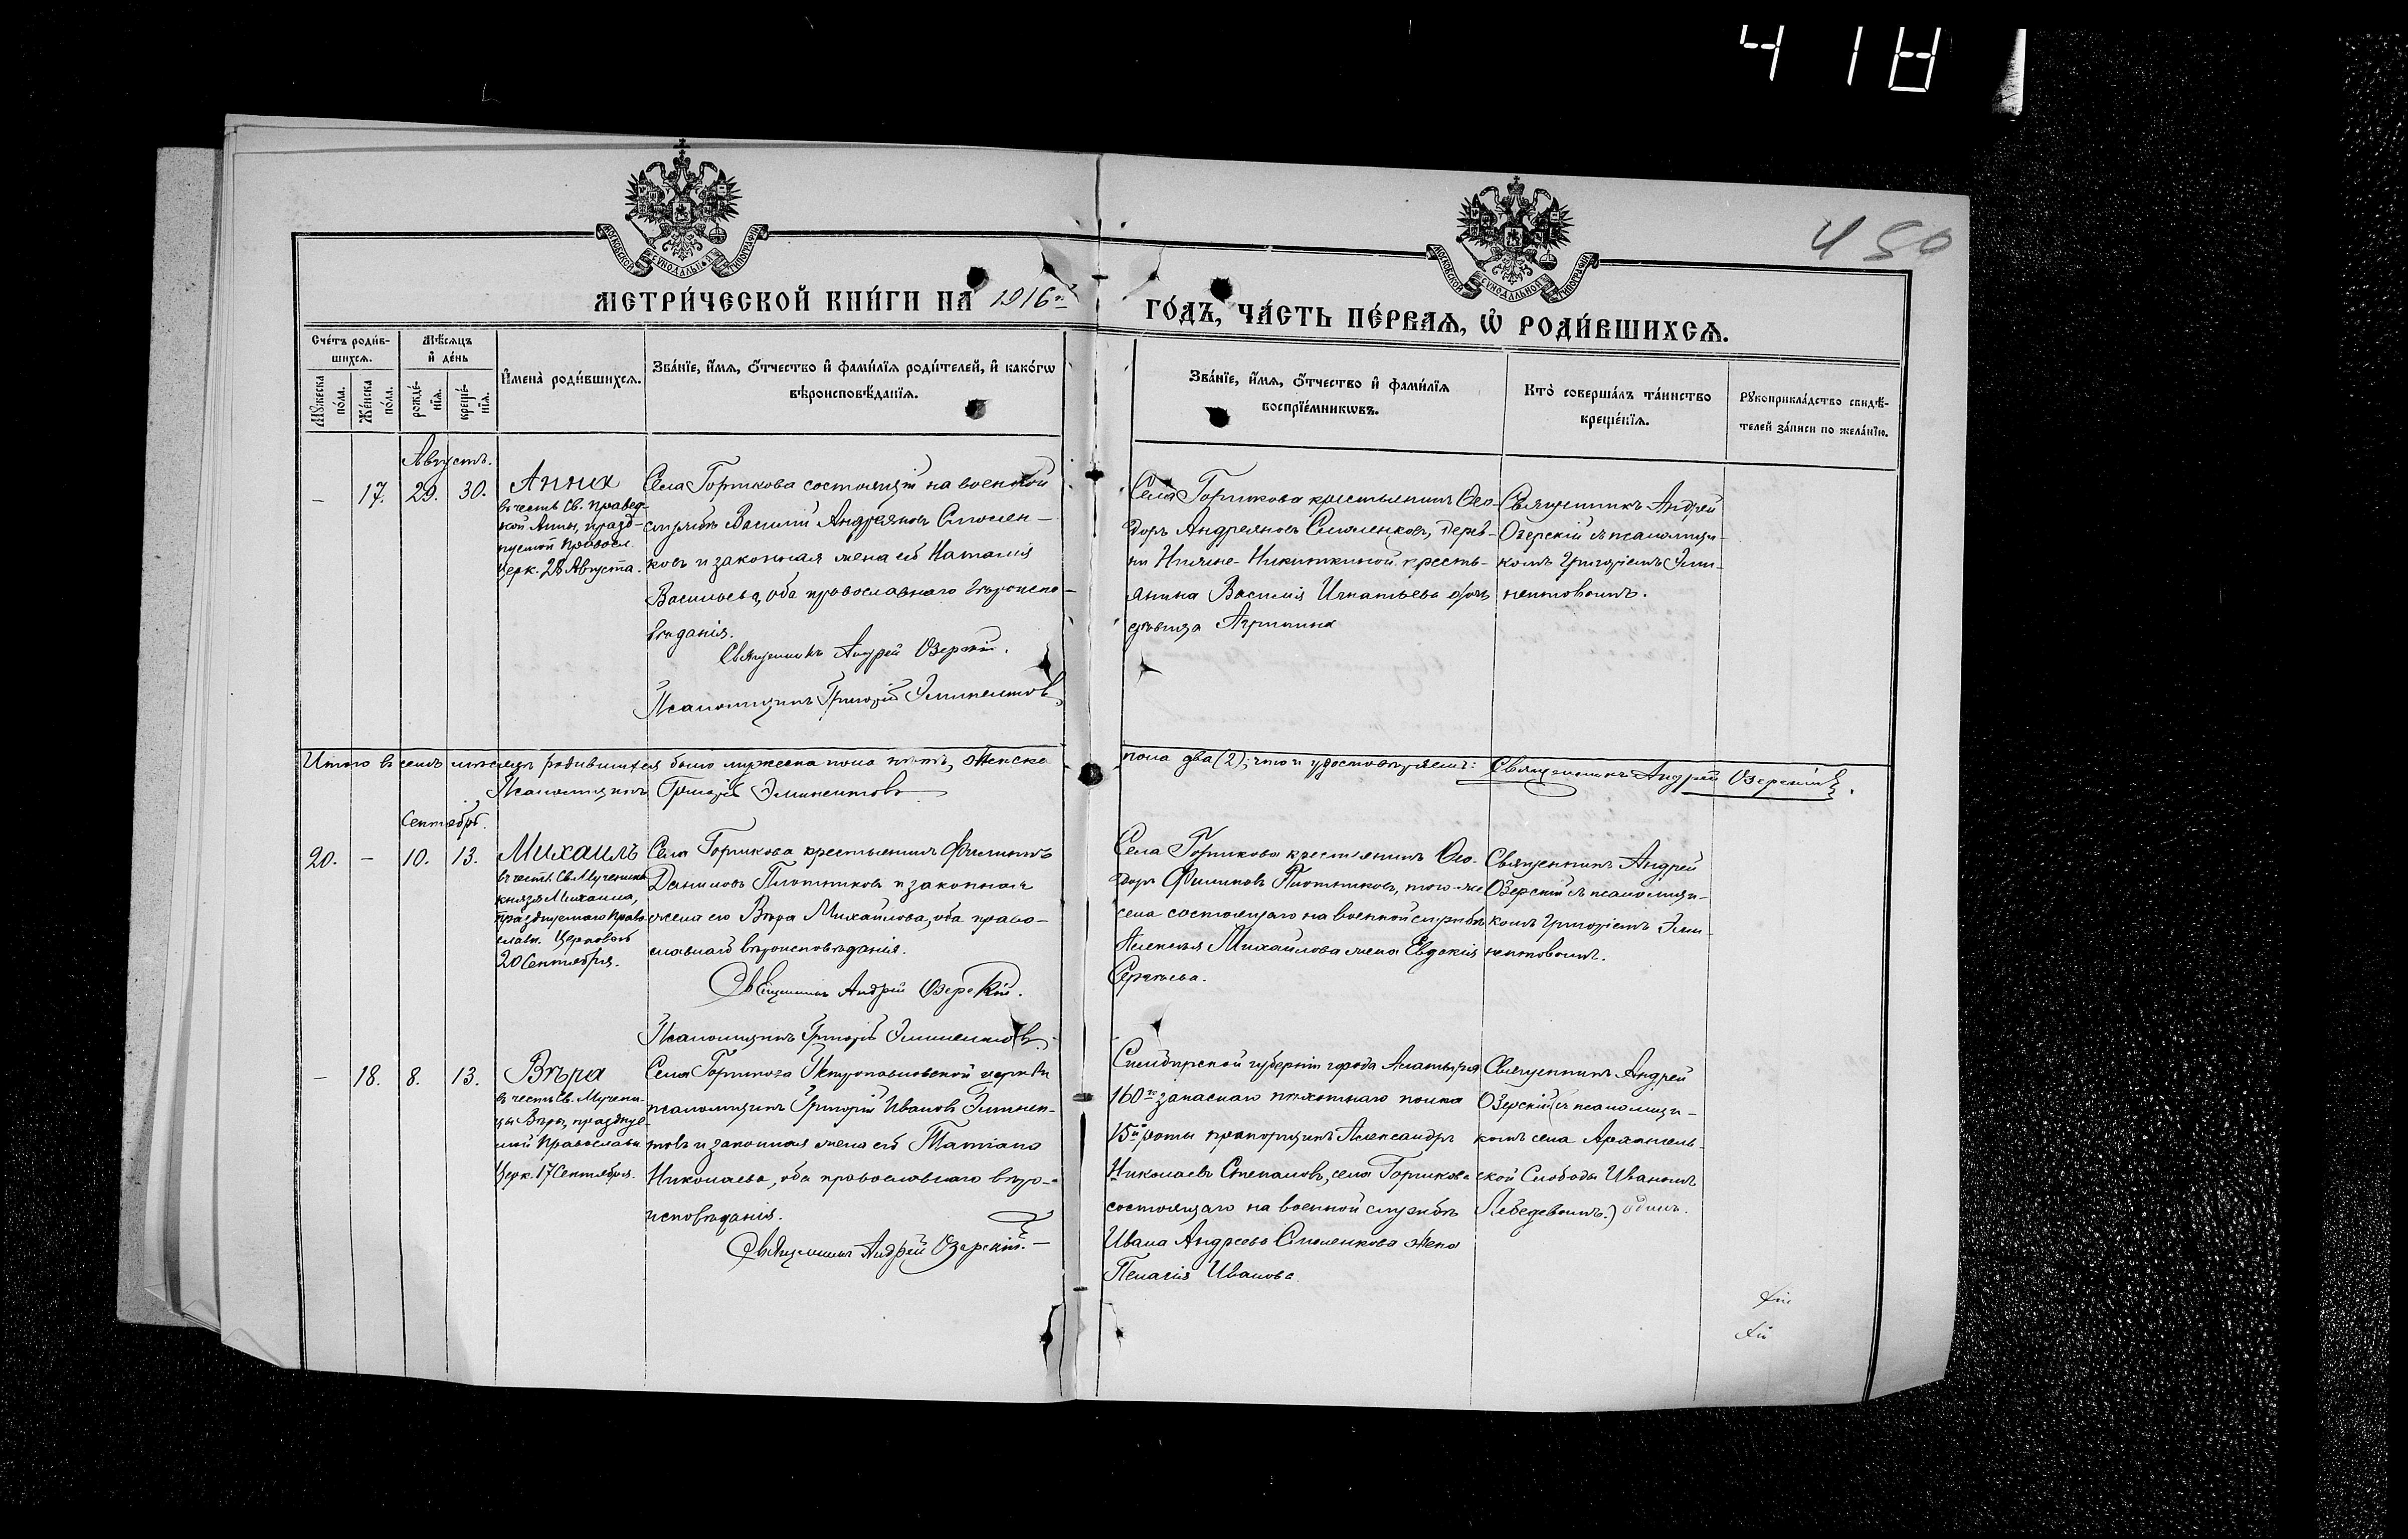 418
450
МОСКОВСКОЙ СУНОДАЛЬНОЙ ТИПОГРАФІИ
МОСКОВСКОЙ СУНОДАЛЬНОЙ ТИПОГРАФІИ
МЕТРИ́ЧЕСКОЙ КНИ́ГИ НА 1916й ГО́ДЪ, ЧА́СТЬ ПЕ́РВАѦ, Ѡ҆ РОДИ́ВШИХСѦ.
Сче́тъ роди́в-
шихсѧ.
Мꙋ́жеска по́ла.
Же́нска по́ла.
Мѣ́сяцъ и҆ де́нь
рожде́-
нїѧ.
креще́-
нїѧ.
И҆мена̀ роди́вшихсѧ.
Зва́нїе, и҆́мѧ, ѻ҆́тчество и҆ фами́лїѧ роди́телей, и҆ како́гѡ
вѣроисповѣ́данїѧ.
Зва́нїе, и҆́мѧ, ѻ҆́тчество и҆ фами́лїѧ
воспрїе́мникѡвъ.
Кто̀ соверша́лъ та́инство
креще́нїѧ.
Рꙋкоприкла́дство свидѣ́-
телей за́писи по жела́нїю.
Августъ.
– 17. 29. 30.
Анна
въ честь Св. Правед-
ной Анны, празд-
нуемой Правосл.
Церк. 28 Августа.
Села Горшкова состоящій на военной
службѣ Василій Андреяновъ Смолен-
ковъ и законная жена его Наталія
Васильева, оба православнаго вѣроиспо-
вѣданія.
Священникъ Андрей Озерскій.
Псаломщикъ Григорій Эминентовъ
Села Горшкова крестьянинъ Ѳео-
доръ Андреяновъ Смоленковъ, дерев-
ни Никиткиной кресть-
янина Василія Игнатьева дочь
дѣвица Агриппина
Священникъ Андрей
Озерскій съ псаломщи-
комъ Григоріемъ Эми-
нентовымъ.
Итого въ семъ мѣсяцѣ родившихся было мужеска пола пять, женска
пола два (2); что и удостовѣряемъ: Священникъ Андрей Озерскій.
Псаломщикъ Григорій Эминентовъ
Сентябрь.
20. – 10. 13.
Михаилъ
въ честь Св. Мученика
князя Михаила,
празднуемаго Право-
славн. Церковью
20 Сентября.
Села Горшкова крестьянинъ Филиппъ
Даниловъ Плотниковъ и законная
жена его Вѣра Михайлова, оба право-
славнаго вѣроисповѣданія.
Священникъ Андрей Озерскій.
Псаломщикъ Григорій Эминентовъ.
Села Горшкова крестьянинъ Ѳео-
доръ Филиповъ Плотниковъ, того-же
села состоящаго на военной службѣ
Алексѣя Михайлова жена Евдокія
Сергѣева.
Священникъ Андрей
Озерскій съ псаломщи-
комъ Григоріемъ Эми-
нентовымъ.
– 18. 8. 13.
Вѣра
въ честь Св. Мучени-
цы Вѣры, празднуе-
мой Православн.
Церк. 17 Сентября.
Села Горшкова Петропавловской церкви
псаломщикъ Григорій Ивановъ Эминен-
товъ и законная жена его Татіана
Николаева, оба православнаго вѣро-
исповѣданія.
Священникъ Андрей Озерскій. –
Симбирской губерніи города Алатыря
160го запаснаго пѣхотнаго полка
15й роты прапорщикъ Александръ
Николаевъ Степановъ, села Горшкова
состоящаго на военной службѣ
Ивана Андреева Смоленкова жена
Пелагія Иванова.
Священникъ Андрей
Озерскій (съ псаломщи-
комъ села Архангель-
ской Слободы Иваномъ
Лебедевымъ.) одинъ.